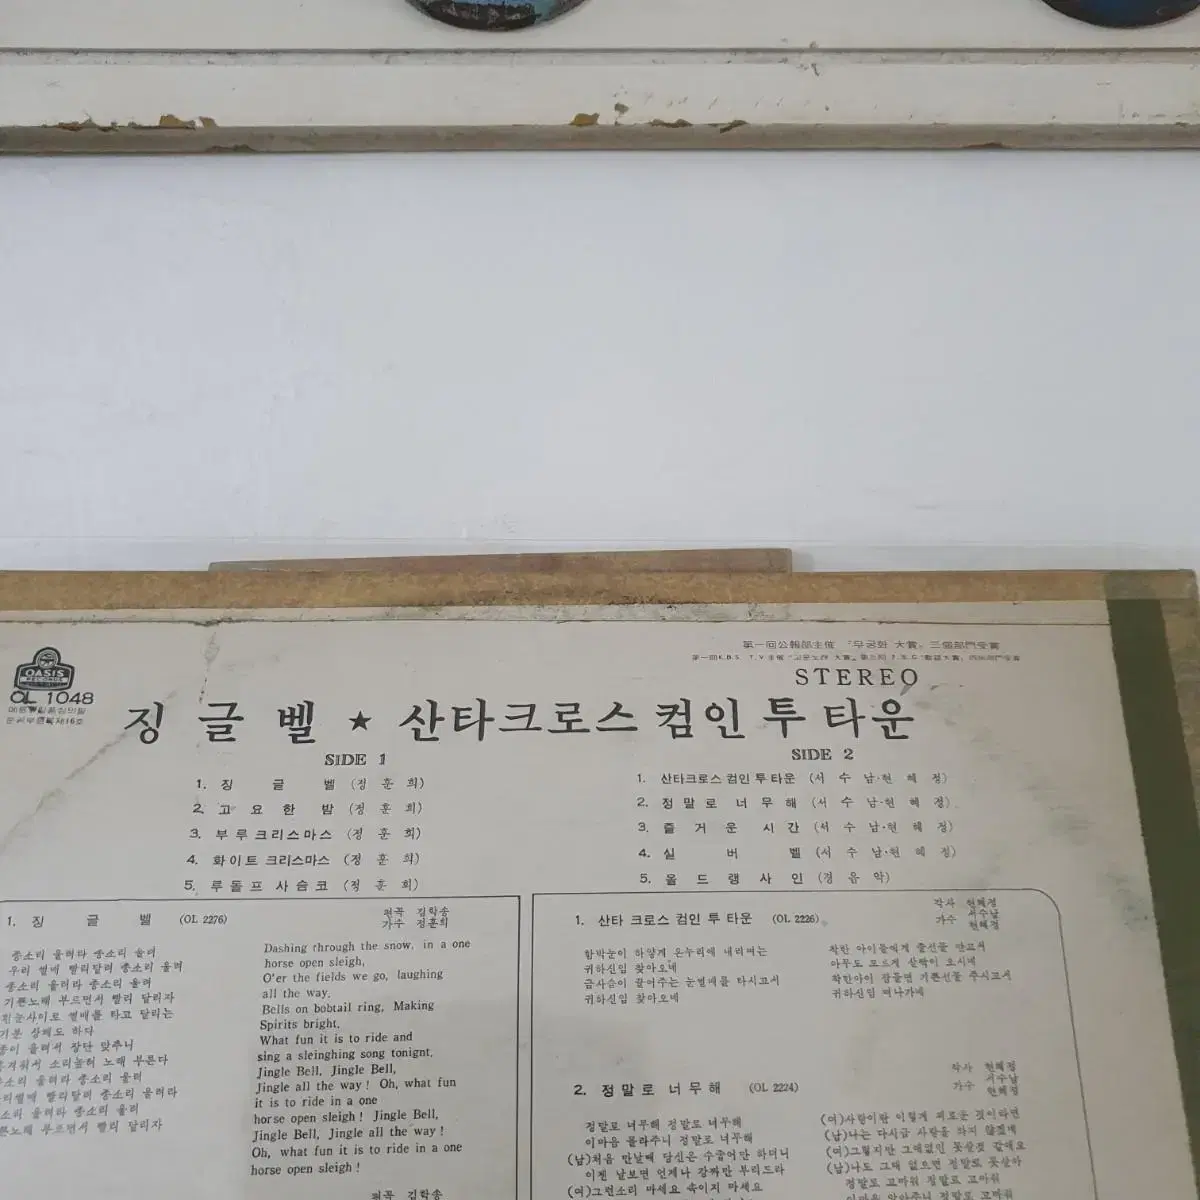 第一回公報部主催 「무궁화 大賞」 三個部門受賞
STEREO
OASIS
RECORDS
OL 1048
징글벨 ★ 산타크로스 컴인 투 타운
SIDE 1
1. 징글벨 (정훈희)
2. 고요한밤 (정훈희)
3. 부루크리스마스 (정훈희)
4. 화이트 크리스마스 (정훈희)
5. 루돌프 사슴코 (정훈희)
SIDE 2
1. 산타크로스 컴인 투 타운 (서수남·현혜정)
2. 정말로 너무해 (서수남·현혜정)
3. 즐거운 시간 (서수남·현혜정)
4. 실버벨 (서수남·현혜정)
5. 올드랭사인 (경음악)
1. 징글벨 (OL 2276)
편곡 김학송
가수 정훈희
종소리 울려라 종소리 울려
우리 썰매 빨리달려 종소리 울려
종소리 울려라 종소리 울려
기쁜노래 부르면서 빨리 달리자
흰눈사이로 썰매를 타고 달리는
기분 상쾌도 하다
종이 울려서 장단 맞추니
흥겨워서 소리높혀 노래 부른다
종소리 울려라 종소리 울려
우리썰매 빨리달려 종소리 울려라
종소리 울려라 종소리 울려
기쁜노래 부르면서 빨리 달리자
Dashing through the snow, in a one
horse open sleigh,
O'er the fields we go, laughing
all the way.
Bells on bobtail ring, Making
Spirits bright.
What fun it is to ride and
sing a sleinghing song tonignt.
Jingle Bell, Jingle Bell,
Jingle all the way! Oh, what fun
it is to ride in a one
horse open sleigh! Jingle Bell,
Jingle Bell, Jingle all the way!
Oh, what fun it is to ride in a one
horse open sleigh!
편곡 김학송
1. 산타 크로스 컴인 투 타운 (OL 2226)
작사 현혜정
가수 서수남
현혜정
함박눈이 하얗게 온누리에 내리며는
귀하신임 찾아오네
금사슴이 끌어주는 눈썰매를 타시고서
귀하신임 찾아오네
착한 아이들에게 줄선물 안고서
아무도 모르게 살짝이 오시네
착한아이 잠들면 기쁜선물 주시고서
귀하신임 떠나가네
2. 정말로 너무해 (OL 2224)
작사 현혜정
가수 서수남
현혜정
정말로 너무해 정말로 너무해
이마음 몰라주니 정말로 너무해
(남)처음 만날때 당신은 수줍어만 하더니
이젠 날보면 언제나 깜짝만 부리드라
(여)그런소리 마세요 속이지 마세요
(여)사랑이란 이렇게 괴로운 것이라면
(남)나는 다시금 사랑을 하지 않겠네
(여)그렇지만 그대없인 못살것 같애요
(남)나도 그대 없으면 정말로 못살아
정말로 고마워 정말로 고마워